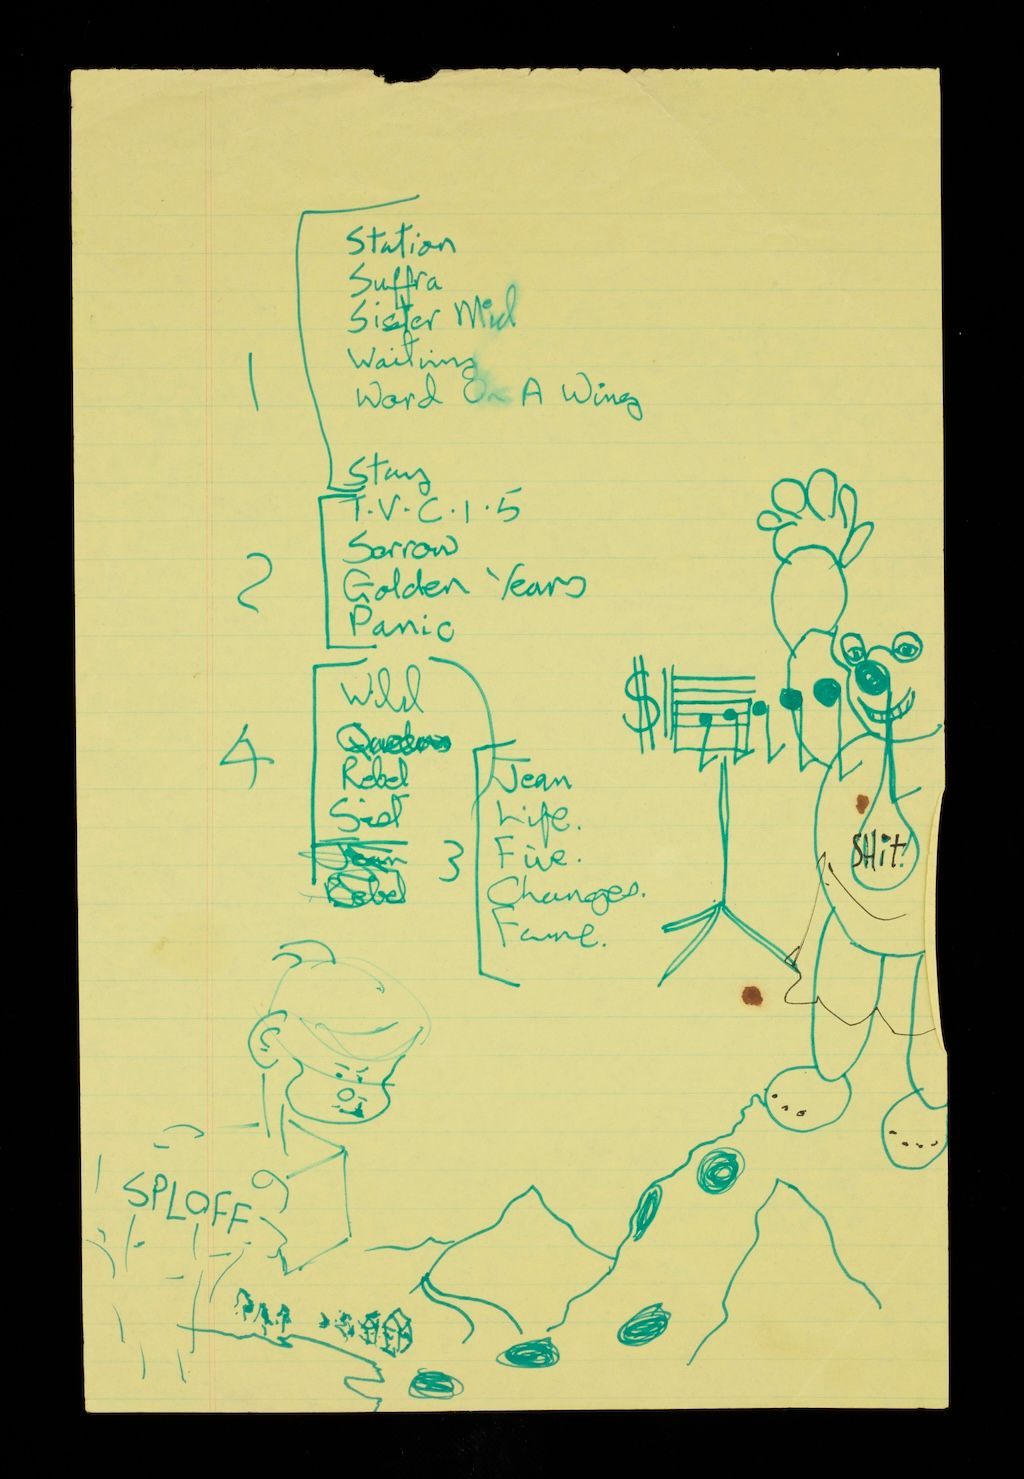 Station
Suffra
Sister Mid
Waiting
Word On A Wing
1
Stay
T.V.C.1.5
Sorrow
Golden Years
Panic
2
Wild
Queen
Rebel
Sist
Jean
Rebel
4
Jean
Life.
Five.
Changes.
Fame.
3
$
SHit!
SPLOFF